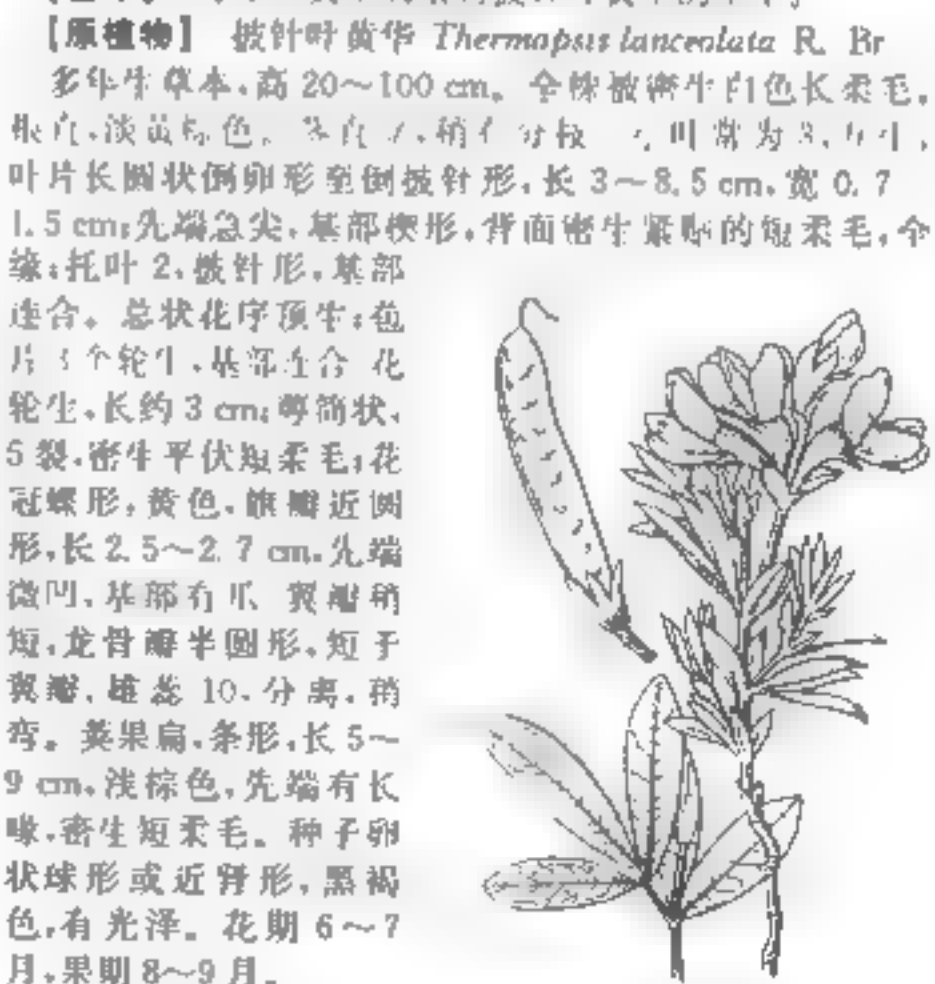 [原植物] 披针叶黄华 Thermopsis lanceolata R. Br
多年生草本,高 20~100 cm。全株被密生白色长柔毛。
根直,淡黄棕色。茎直立,稍有分枝 叶常为3,
叶片长圆状倒卵形至倒披针形,长 3~8.5 cm,宽 0.7
1.5 cm;先端急尖,基部楔形,背面密生紧贴的短柔毛,全
缘;托叶 2,披针形,基部
连合。总状花序顶生;苞
片3个轮生,基部连合 花
轮生,长约 3 cm;萼筒状,
5 裂,密生平伏短柔毛;花
冠蝶形,黄色,旗瓣近圆
形,长 2.5~2.7 cm,先端
微凹,基部有爪 翼瓣稍
短,龙骨瓣半圆形,短于
翼瓣,雄蕊 10,分离,稍
弯。荚果扁,条形,长 5~
9 cm,浅棕色,先端有长
喙,密生短柔毛。种子卵
状球形或近肾形,黑褐
色,有光泽。花期 6~7
月,果期 8~9 月。